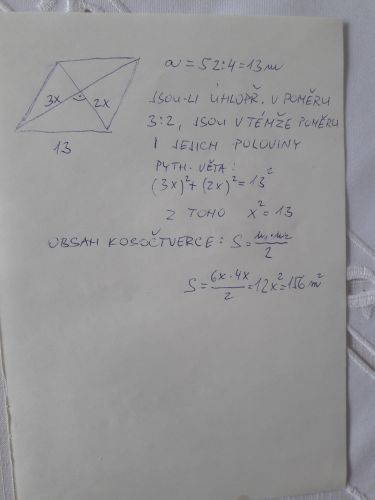 a = 52:4 = 13 m
3x 2x
13
JSOU-LI ÚHLOPŘ. V POMĚRU
3:2, JSOU V TÉMŽE POMĚRU
I JEJICH POLOVINY
PYTH. VĚTA:
(3x)²+(2x)² = 13²
Z TOHO x² = 13
OBSAH KOSOČTVERCE: S = u₁·u₂/2
S = 6x·4x/2 = 12x² = 156 m²